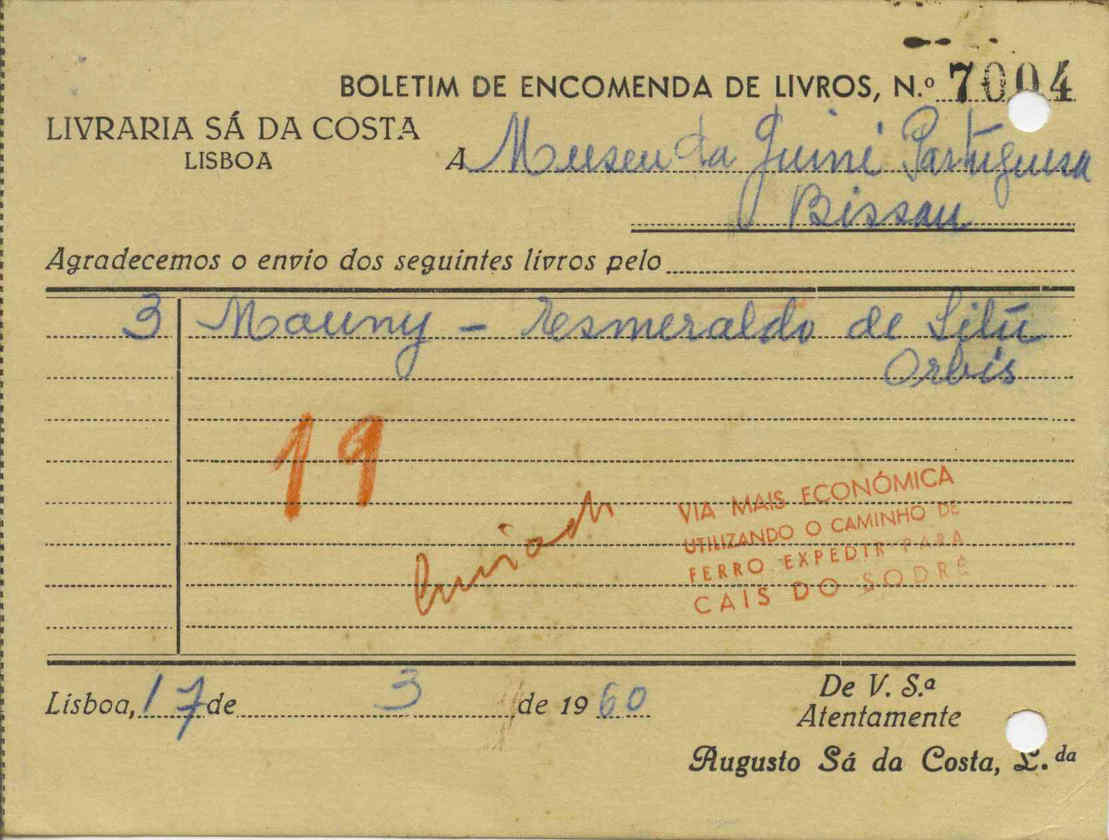 BOLETIM DE ENCOMENDA DE LIVROS, N.º 7004
LIVRARIA SÁ DA COSTA
LISBOA
A Museu da Guiné Portuguesa
Bissau
Agradecemos o envio dos seguintes livros pelo
3 Mauny - Esmeraldo de Situ
Orbis
19
Enviado
VIA MAIS ECONÓMICA
UTILIZANDO O CAMINHO DE
FERRO EXPEDIR PARA
CAIS DO SODRÉ
Lisboa, 17 de 3 de 1960
De V. S.ª
Atentamente
Augusto Sá da Costa, L.da